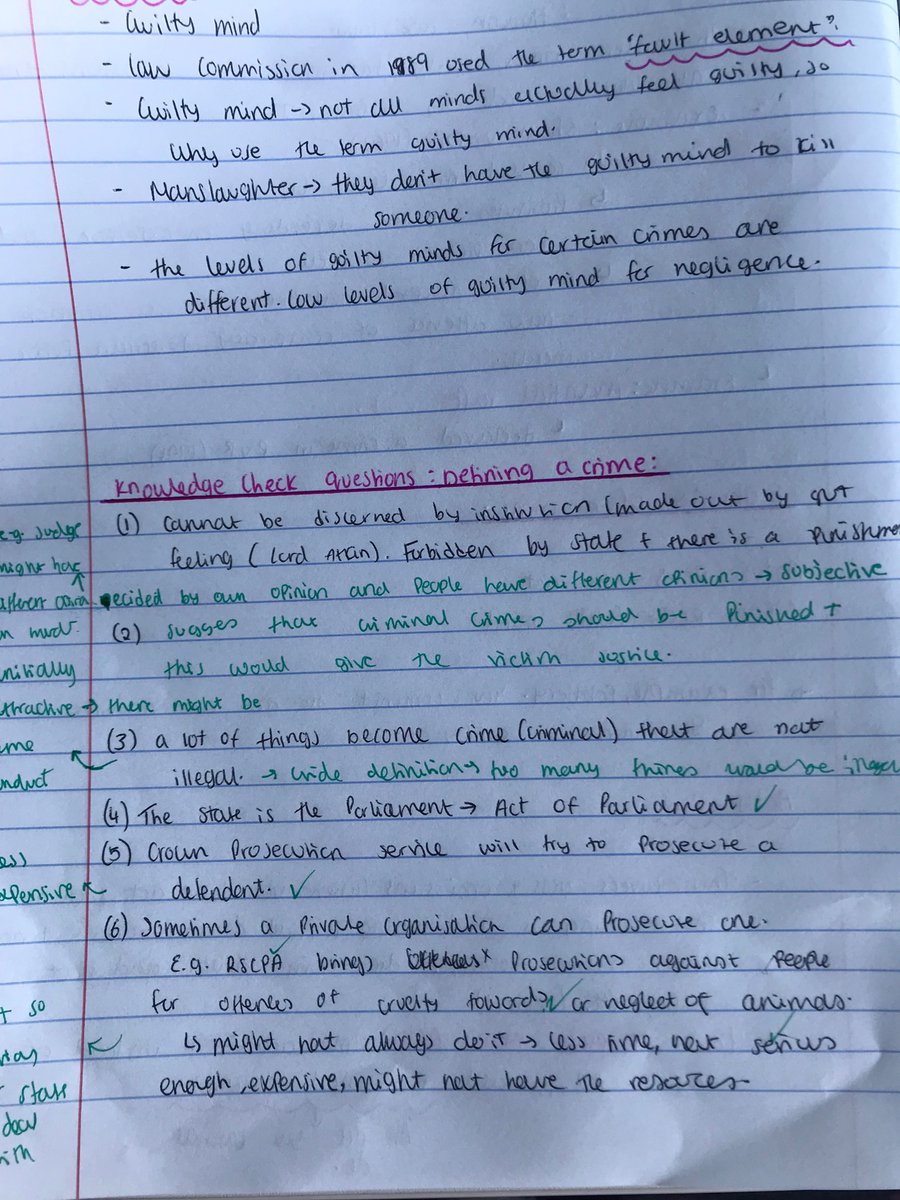 - Guilty mind
- Law Commission in 1989 used the term "fault element".
- Guilty mind → not all minds actually feel guilty, so
why use the term guilty mind.
- Manslaughter → they don't have the guilty mind to kill
someone.
- the levels of guilty minds for certain crimes are
different. Low levels of guilty mind for negligence.
Knowledge Check questions: Defining a crime:
(1) cannot be discerned by (made out by gut
feeling (Lord Atkin). Forbidden by state + there is a Punishment
decided by own opinion and people have different opinions → subjective
(2) that criminal crimes should be Punished +
this would give the victim justice.
there might be
(3) a lot of things become crime (criminal) that are not
illegal. → wide definition → too many things would be illegal
(4) The state is the Parliament → Act of Parliament ✓
(5) Crown Prosecution service will try to prosecute a
defendent. ✓
(6) Sometimes a Private Organisation can Prosecute one.
E.g. RSCPA ✓ brings Prosecutions against People
for offences of cruelty towards ✓ or neglect of animals.
↳ might not always do it → less time, not serious
enough, expensive, might not have the resources.
e.g. judge
might have
different
initially
attractive →
conduct
expensive
so
state